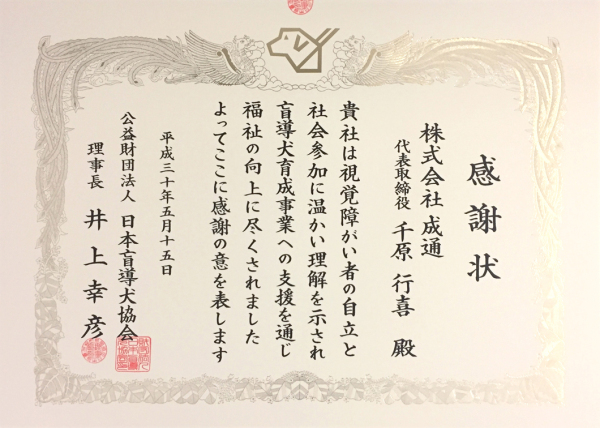 感謝状
株式会社 成通
代表取締役 千原 行喜 殿
貴社は視覚障がい者の自立と
社会参加に温かい理解を示され
盲導犬育成事業への支援を通じ
福祉の向上に尽くされました
よってここに感謝の意を表します
平成三十年五月十五日
公益財団法人 日本盲導犬協会
理事長 井上幸彦